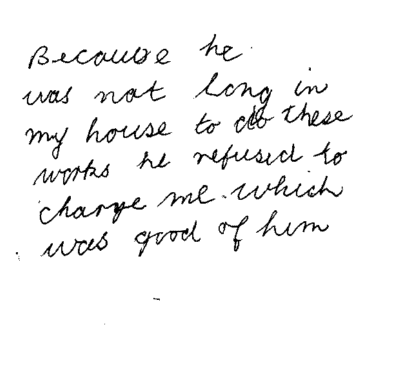 Because he
was not long in
my house to do these
works he refused to
charge me. which
was good of him